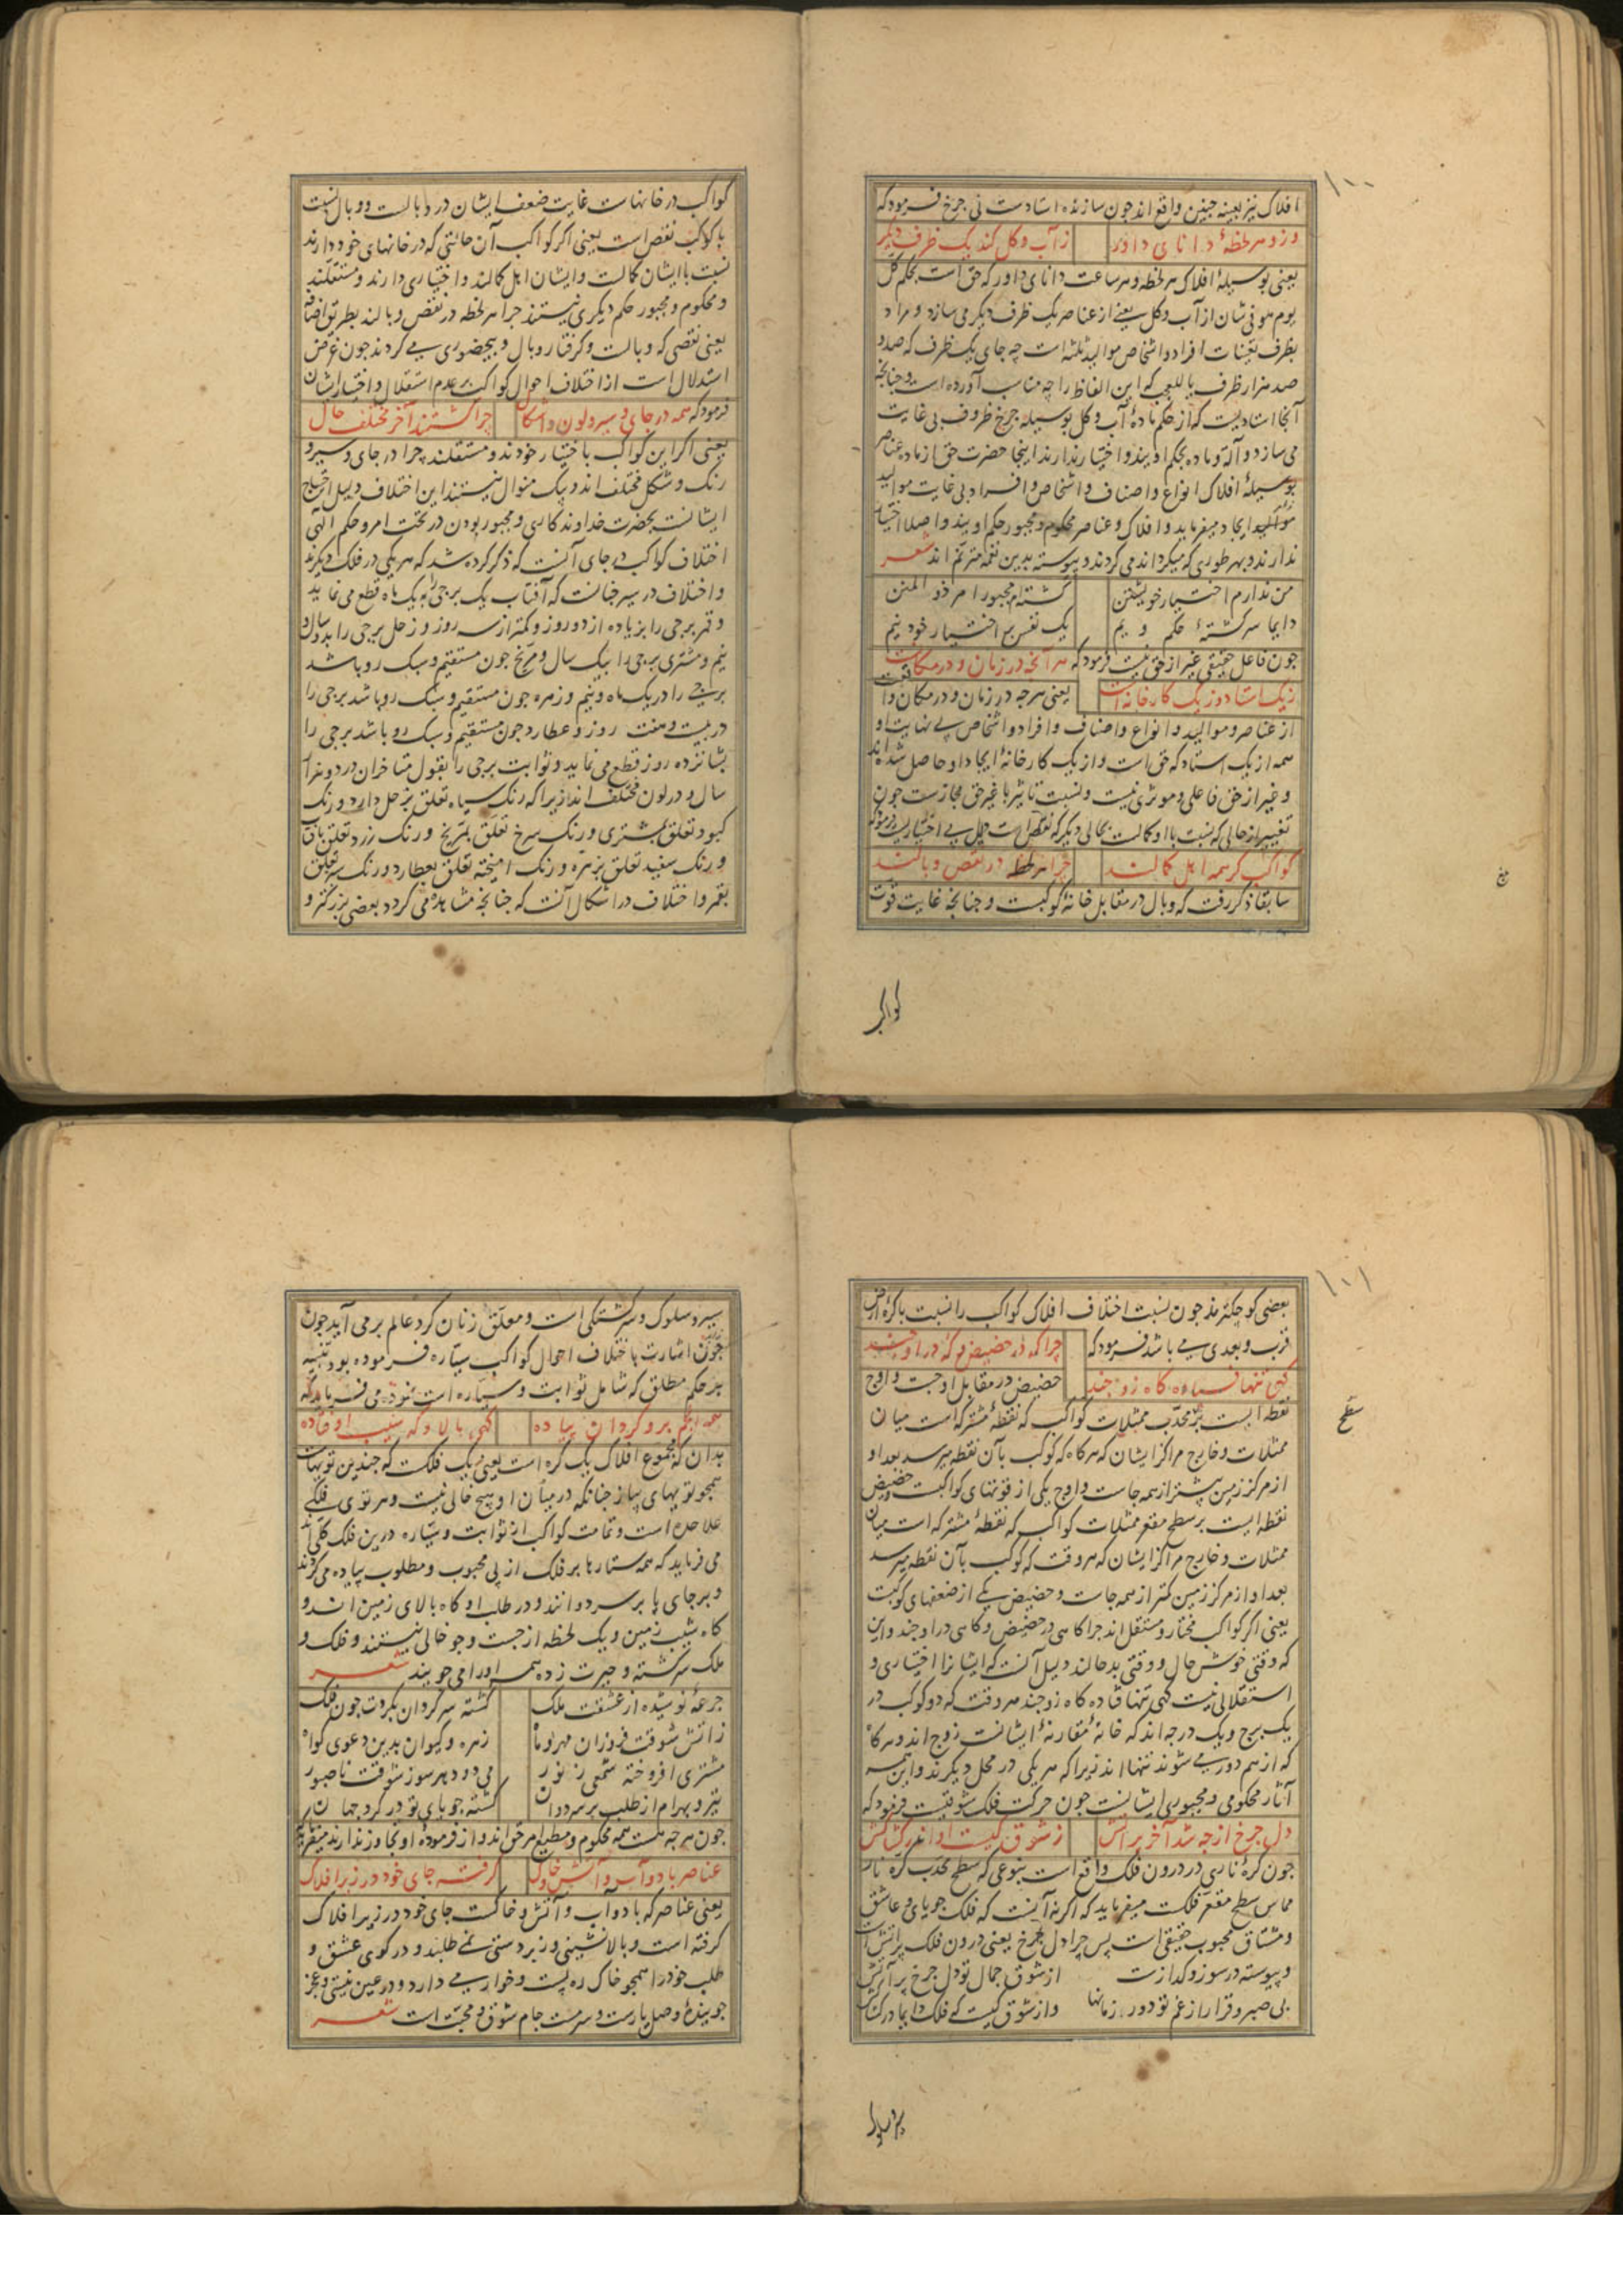 ۱۰۰
افلاک نیز بعینه چنین واقع اند چون سازنده استادست نی چرخ فرمود که
وزو هر لحظهٔ دانای داور زآب و کل کند یک ظرف دیکر
یعنی بوسیلهٔ افلاک هر لحظه و هر ساعت دانای داور که حق است بحکم کل
یوم هو فی شان از آب و کل یعنی از عناصر یک ظرف دیکر می سازد و مراد
بظرف تعینات افراد و اشخاص موالید ثلثه است چه جای یک ظرف که صد و
صد هزار ظرف یا للعجب که این الفاظ را چه مناسب آورده است و چنانچه
آنجا استادیست که از حکم مادهٔ آب و کل بوسیلهٔ چرخ ظروف بی غایت
می سازد و آلة و ماده بحکم اویند و اختیار ندارند اینجا حضرت حق از ماده عناصر
بوسیلهٔ افلاک انواع و اصناف و اشخاص و افراد بی غایت موالید
موالید ایجاد میفرماید و افلاک و عناصر محکوم و مجبور حکم اویند و اصلا اختیار
ندارند و بهر طوری که میکرداند می کردند و پیوسته بدین نغمه مترنم اند شعر
من ندارم اختیار خویشتن کشته ام مجبور امر ذو المنن
دایما سرکشتهٔ حکم ویم یک نفس بی اختیار خود نیم
چون فاعل حقیقی غیر از حق نیست فرمود که هر آنچه در زمان و در مکانست
زیک استاد وز یک کارخانه است یعنی هر چه در زمان و در مکان واقعست
از عناصر و موالید و انواع و اصناف و افراد و اشخاص بی نهایت او
همه از یک استاد که حق است و از یک کارخانهٔ ایجاد او حاصل شده اند
و غیر از حق فاعلی و موثری نیست و نسبت تاثیر با غیر حق مجازست چون
تغییر از حالی که نسبت با او کمالست بحالی دیکر که نقص است دلیل بی اختیاریست فرمود که
کواکب کر همه اهل کمالند چرا هر لحظه در نقص و بالند
سابقا ذکر رفت که وبال در مقابل خانهٔ کوکبست و چنانچه غایت قوت
کواکب
کواکب در خانهاست غایت ضعف ایشان در وبالست و وبال نسبت
با کوکب نقص است یعنی اکر کواکب آن حالتی که در خانهای خود دارند
نسبت با ایشان کمالست و ایشان اهل کمالند و اختیاری دارند و مستقلند
و محکوم و مجبور حکم دیکری نیستند چرا هر لحظه در نقص و بالند بطریق اضافه
یعنی نقصی که وبالست و کرفتار وبال و بیحضوری می کردند چون غرض
استدلال است از اختلاف احوال کواکب بر عدم استقلال و اختیار ایشان
فرمود که همه در جای و سیر و لون و اشکال چرا کشتند آخر مختلف حال
یعنی اکر این کواکب باختیار خودند و مستقلند چرا در جای و سیر و
رنک و شکل مختلف اند و بیک منوال نیستند این اختلاف دلیل احتیاج
ایشانست بحضرت خداوند کاری و مجبور بودن در تحت امر و حکم الهی
اختلاف کواکب در جای آنست که ذکر کرده شد که هر یکی در فلک دیکرند
و اختلاف در سیر چنانست که آفتاب یک برجی به یک ماه قطع می نماید
و قمر برجی را بزیاده از دو روز و کمتر از سه روز و زحل برجی را بدو سال و
نیم و مشتری برجی را بیک سال و مریخ چون مستقیم و سبک رو باشد
برجی را در یک ماه و نیم و زهره چون مستقیم و سبک رو باشد برجی را
در بیست و هفت روز و عطارد چون مستقیم و سبک رو باشد برجی را
بشانزده روز قطع می نماید و ثوابت برجی را بقول متاخران در دو هزار
سال و در لون مختلف اند زیرا که رنک سیاه تعلق بزحل دارد و رنک
کبود تعلق بمشتری و رنک سرخ تعلق بمریخ و رنک زرد تعلق بآفتاب
و رنک سفید تعلق بزهره و رنک امیخته تعلق بعطارد و رنک سبز تعلق
بقمر و اختلاف در اشکال آنست که چنانچه مشاهده می کردد بعضی بزرکتر و
۱۰۱
بعضی کوچکترند چون نسبت اختلاف افلاک کواکب را نسبت با کره ارض
قرب و بعدی می باشد فرمود که چرا که در حضیض و که در اوجند
کهی تنها فتاده کاه زوجند حضیض در مقابل اوجست و اوج
نقطه ایست بر محدب ممثلات کواکب که نقطهٔ مشترکه است میان
ممثلات و خارج مراکز ایشان که هر کاه که کوکب بآن نقطه میرسد بعد او
از مرکز زمین بیشتر از همه جاست و اوج یکی از قوتهای کواکبست و حضیض
نقطه ایست بر سطح مقعر ممثلات کواکب که نقطهٔ مشترکه است میان
سطح
ممثلات و خارج مراکز ایشان که هر وقت که کوکب بآن نقطه میرسد
بعد او از مرکز زمین کمتر از همه جاست و حضیض یکی از ضعفهای کوکبست
یعنی اکر کواکب مختار و مستقل اند چرا کاهی در حضیض و کاهی در اوجند و این
که وقتی خوش حال و وقتی بد حالند دلیل آنست که ایشانرا اختیاری و
استقلالی نیست کهی تنها فتاده کاه زوجند هر وقت که دو کوکب در
یک برج و یک درجه اند که خانهٔ مقارنهٔ ایشانست زوج اند و هر کاه
که از هم دور می شوند تنها اند زیرا که هر یکی در محل دیکرند و این همه
آثار محکومی و مجبوری ایشانست چون حرکت فلک شوقیست فرمود که
دل چرخ از چه شد آخر پر آتش ز شوق کیست او اندر کشاکش
چون کرهٔ ناری در درون فلک واقع است بنوعی که سطح محدب کره نار
مماس سطح مقعر فلکست میفرماید که اکر نه آنست که فلک جویای و عاشق
و مشتاق محبوب حقیقی است پس چرا دل چرخ یعنی درون فلک پر آتش است
و پیوسته در سوز و کدازست از شوق جمال تو دل چرخ پر آتش
بی صبر و قرار از غم تو دور زمانها و از شوق کیست که فلک دایما در کشاکش
سیر و سلوک
سیر و سلوک و سرکشتکی است و معلق زنان کرد عالم برمی آید چون
چون اشارت باختلاف احوال کواکب سیاره فرموده بود تنبیه
بر حکم مطلق که شامل ثوابت و سیاره است نموده می فرماید که
همه انجم برو کردان پیاده کهی بالا و که شیب اوفتاده
بدان که مجموع افلاک یک کره است یعنی یک فلکست که چندین تو بهاست
همچو تویهای پیاز چنانکه در میان او هیچ خالی نیست و هر توی فلکی
علاحده است و تمامت کواکب از ثوابت و سیاره درین فلک کلی اند
می فرماید که همه ستارها بر فلک از پی محبوب و مطلوب پیاده می کردند
و بر جای پا بر سر دوانند و در طلب او کاه بالای زمین اند و
کاه شیب زمین و یک لحظه از جست و جو خالی نیستند و فلک و
ملک سرکشته و حیرت زده همه او را می جویند شعر
جرعهٔ نوشیده از عشقت ملک کشته سرکردان بکردت چون فلک
ز آتش شوقت فروزان مهر و ماه زهره و کیوان بدین دعوی کواه
مشتری افروخته شمعی ز نور می دود در سوز شوقت ناصبور
تیر و بهرام از طلب بر سر دوان کشته جویای تو در کرد جهان
چون هر چه هست همه محکوم و مطیع امر حق اند و از فرمودهٔ او تجاوز ندارند میفرماید
عناصر باد و آب و آتش و خاک کرفته جای خود در زیر افلاک
یعنی عناصر که باد و آب و آتش و خاکست جای خود در زیر افلاک
کرفته است و بالانشینی و زبردستی نمی طلبد و در کوی عشق و
طلب خود را همچو خاک ره پست و خوار می دارد و در عین نیستی و عجز
جویندهٔ وصل یارست و سرمست جام شوق و محبت است شعر